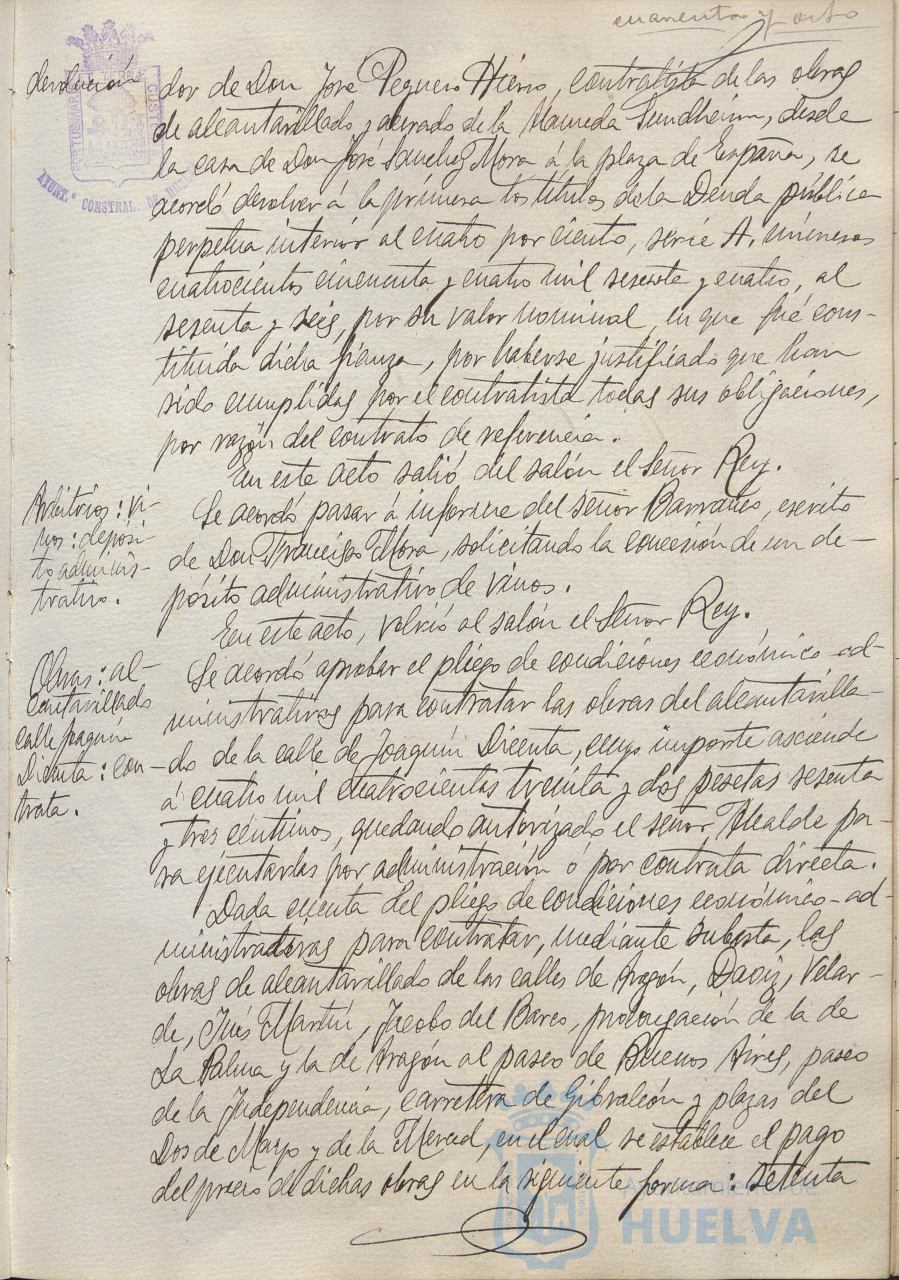 cuarenta y ocho
devolución
dor de Don José Peguero Hierro, contratista de las obras
de alcantarillado y acerado de la Alameda Sundheim, desde
la casa de Don José Sanchez Mora á la plaza de España, se
acordó devolver á la primera los títulos de la Deuda pública
perpetua interior al cuatro por ciento, serie A, números
cuatrocientos cincuenta y cuatro mil sesenta y cuatro, al
sesenta y seis, por su valor nominal, en que fué cons-
tituida dicha fianza, por haberse justificado que han
sido cumplidas por el contratista todas sus obligaciones,
por razón del contrato de referencia.
En este acto salió del salón el Señor Rey.
Arbitrios: vi-
nos: depósi-
to adminis-
trativo.
Se acordó pasar á informe del señor Barranco, escrito
de Don Francisco Mora, solicitando la concesión de un de-
pósito administrativo de vinos.
En este acto, volvió al salón el Señor Rey.
Obras: al-
cantarillado
calle Joaquín
Dicenta: con-
trata.
Se acordó aprobar el pliego de condiciones económico-ad-
ministrativas para contratar las obras del alcantarilla-
do de la calle de Joaquín Dicenta, cuyo importe asciende
á cuatro mil cuatrocientas treinta y dos pesetas sesenta
y tres céntimos, quedando autorizado el señor Alcalde pa-
ra ejecutarlas por administración ó por contrata directa.
Dada cuenta del pliego de condiciones económico-ad-
ministrativas para contratar, mediante subasta, las
obras de alcantarillado de las calles de Aragón, Daoiz, Velar-
de, Inés Martín, Jacobo del Barco, prolongación de la de
La Palma y la de Aragón al paseo de Buenos Aires, paseo
de la Independencia, carretera de Gibraleón y plazas del
Dos de Mayo y de la Merced, en el cual se establece el pago
del precio de dichas obras en la siguiente forma: setenta
AYUNT.º CONSTNAL. DE
Ayuntamiento de
HUELVA